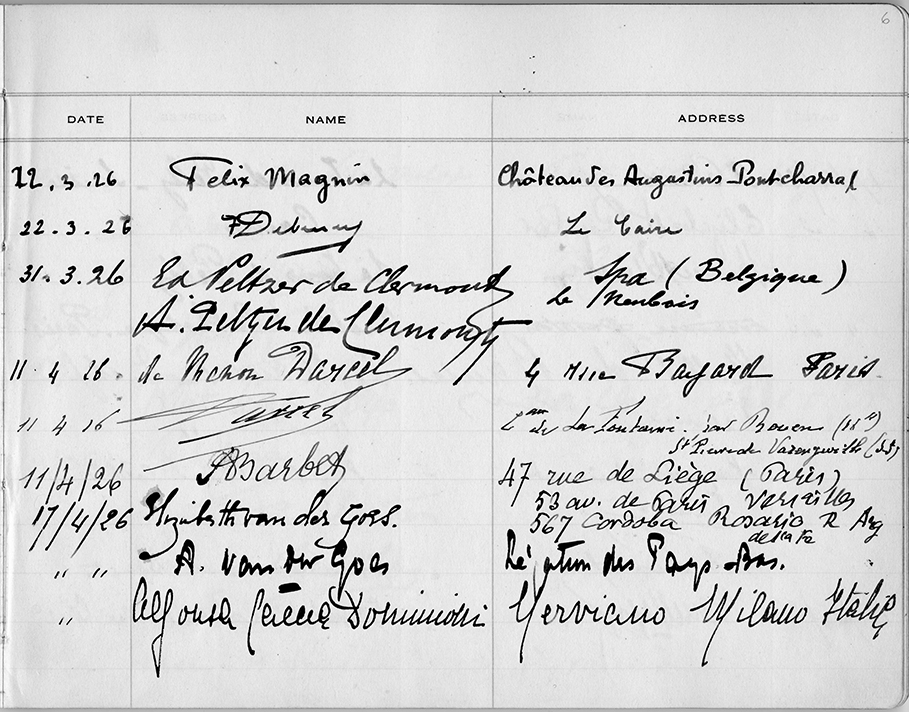 6
DATE NAME ADDRESS
22.3.26 Felix Magnin Château des Augustins Pontcharral
22.3.26 Le Caire
31.3.26 Ed Peltzer de Clermont Spa (Belgique)
Le Neubois
A. Peltzer de Clermont
11 4 26. Darcel 4 rue Bayard Paris.
11 4 26 Darcel de La Fontaine par Rouen
St Pierre de Varengeville (S.I)
11/4/26 Barbet 47 rue de Liège (Paris)
53 av. de Paris Versailles
17/4/26 Elizabeth van der Goes. 567 Cordoba Rosario R Arg
de la Fe
" " A. van der Goes Légation des Pays-Bas.
" Dominioni Nerviano Milano Italie